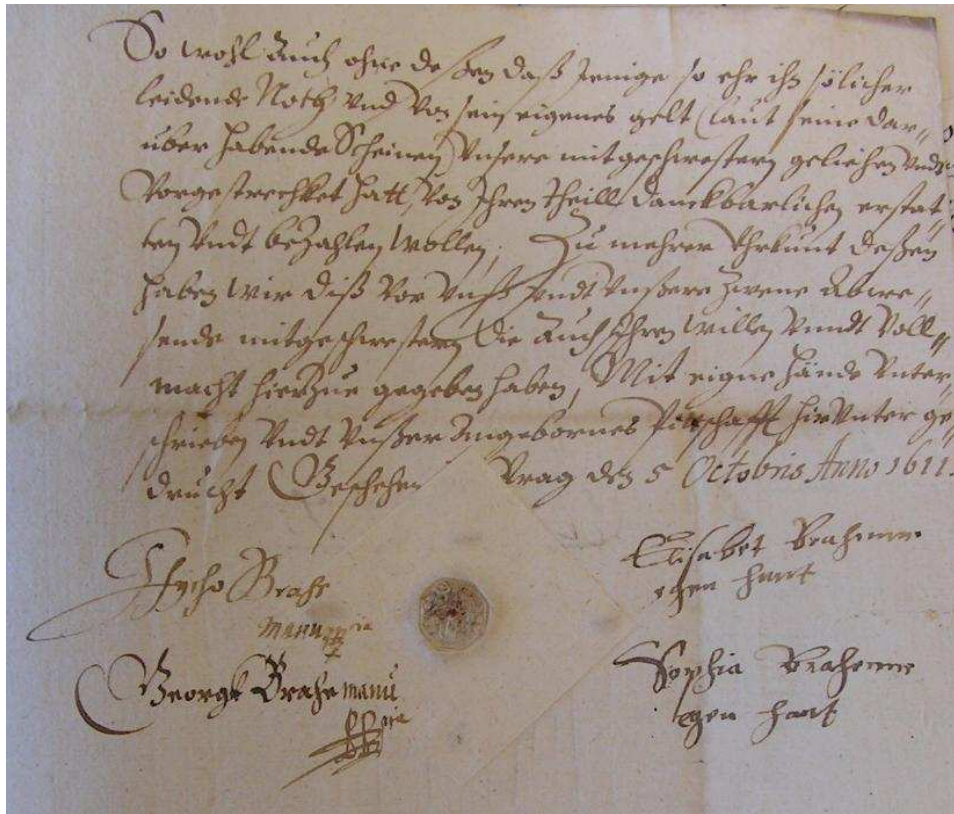 So wohl auch ohne deßen daß Jenige so ehr ihn sölicher
leidende Noth Vnd Von sein eigenes gelt (laut seine dar„
über habende Scheinen) Vnsere mitgeschwestern geliehen Vndt
Vorgestreckhet hatt, Von Ihren theill danckbarlichen erstat„
ten Vndt bezahlen wollen, Zu mehrer Vhrkunt deßen
haben Wir diß Vor Vnß Vndt Vnßere zwene Abwe„
sende mitgeschwestern die Auch Ihren willen Vnndt Voll„
macht hierzue gegeben haben, Mit eigne hände Vnter„
schrieben Vndt Vnßer Angebornes Pittschafft hirVnter ge„
drucht Geschehen Prag den 5 Octobris Anno 1611.
Tycho Brahe
manu ppria
Georgk Brahe manu
ppria
Elisabet Brahenne
egen hant
Sophia Brahenne
egen hant